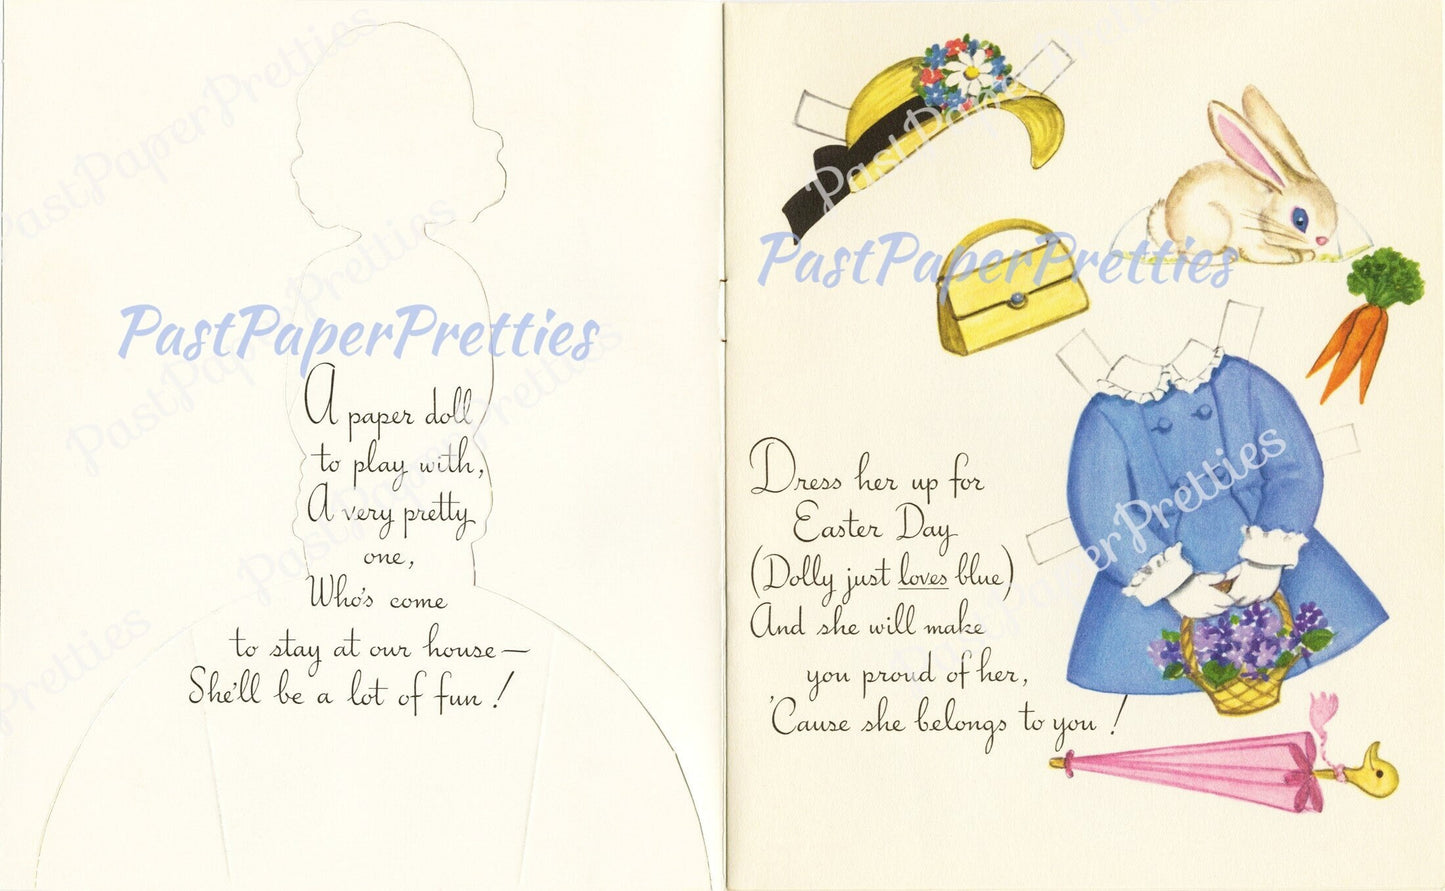 PastPaperPretties
A paper doll
to play with,
A very pretty
one,
Who's come
to stay at our house—
She'll be a lot of fun!
PastPaperPretties
Dress her up for
Easter Day
(Dolly just loves blue)
And she will make
you proud of her,
'Cause she belongs to you!
PastPaperPretties
PastPaperPretties
PastPaperPretties
PastPaperPretties
PastPaperPretties
PastPaperPretties